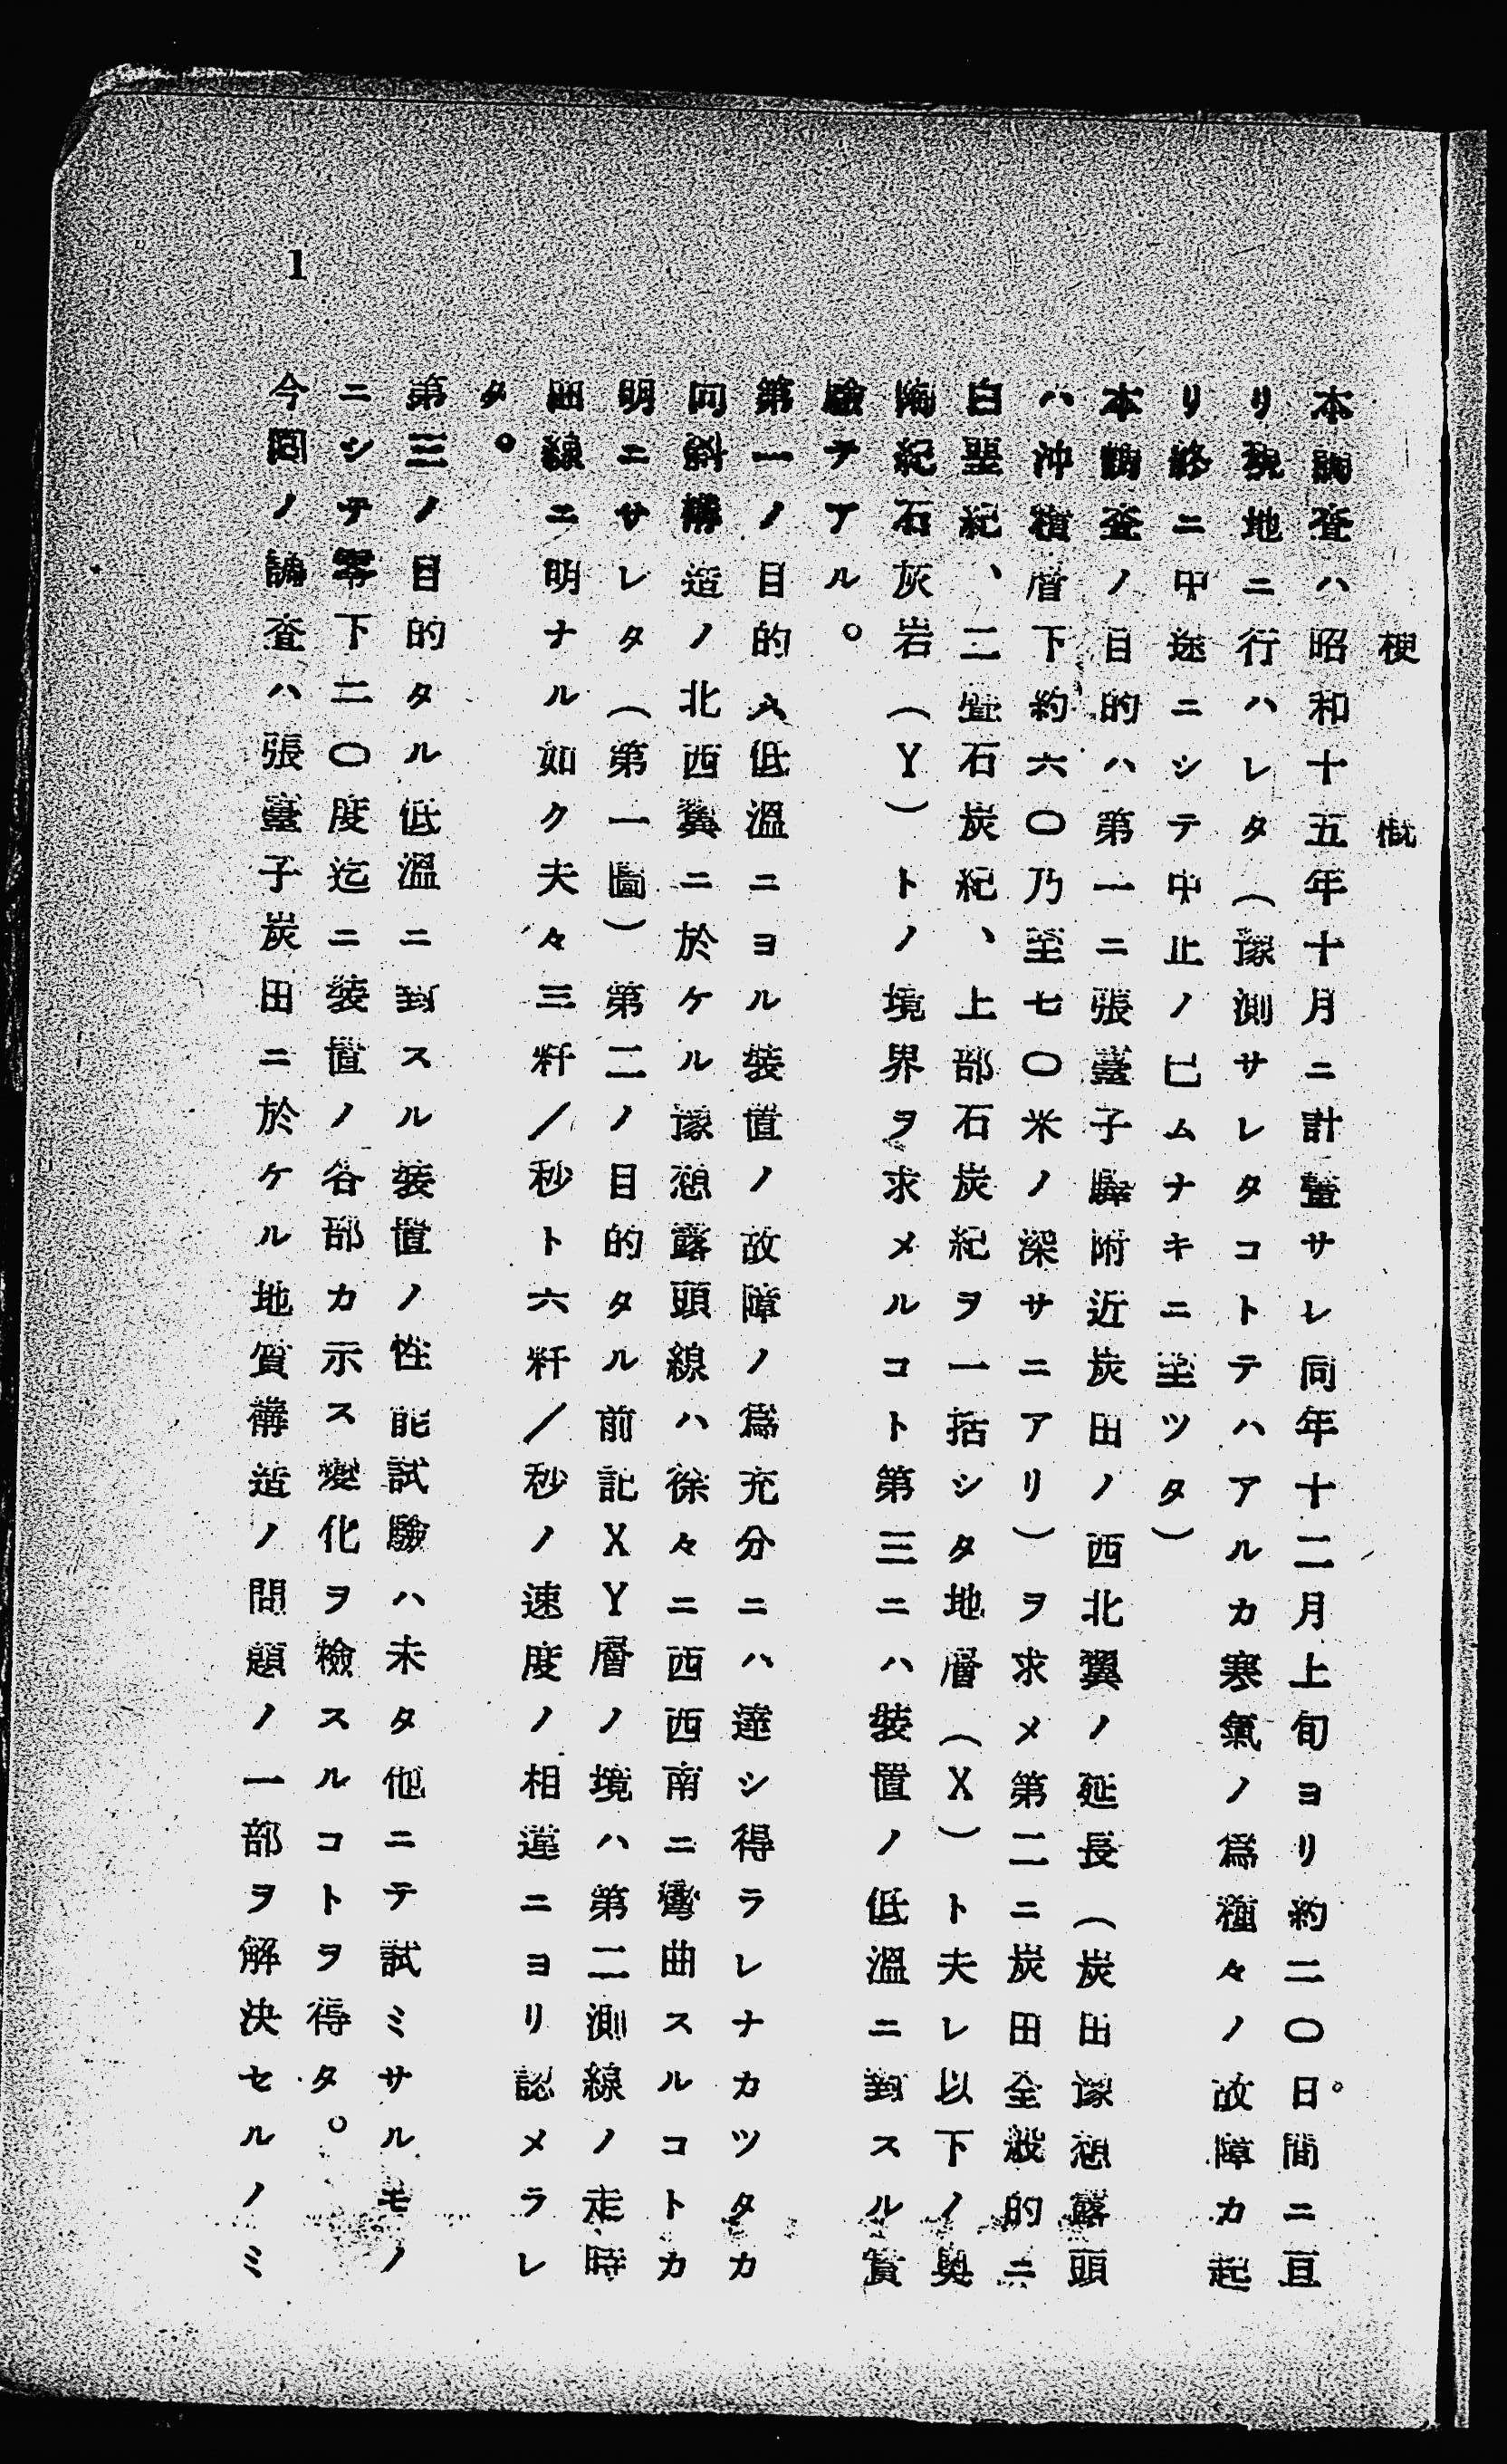 梗概
本調査ハ昭和十五年十月ニ計畫サレ同年十二月上旬ヨリ約二〇日間ニ亘
リ現地ニ行ハレタ（豫測サレタコトテハアルカ寒氣ノ爲種々ノ故障カ起
リ終ニ中途ニシテ中止ノ已ムナキニ至ツタ）。
本調査ノ目的ハ第一ニ張臺子驛附近炭田ノ西北翼ノ延長（炭田豫想露頭
ハ沖積層下約六〇乃至七〇米ノ深サニアリ）ヲ求メ第二ニ炭田全般的ニ
白堊紀、二疊石炭紀、上部石炭紀ヲ一括シタ地層（X）ト夫レ以下ノ奥
陶紀石灰岩（Y）トノ境界ヲ求メルコト第三ニハ裝置ノ低溫ニ對スル實
驗テアル。
第一ノ目的ハ低溫ニヨル裝置ノ故障ノ爲充分ニハ達シ得ラレナカツタカ
向斜構造ノ北西翼ニ於ケル豫想露頭線ハ徐々ニ西西南ニ彎曲スルコトカ
明ニサレタ（第一圖）第二ノ目的タル前記XY層ノ境ハ第二測線ノ走時
曲線ニ明ナル如ク夫々三粁／秒ト六粁／秒ノ速度ノ相違ニヨリ認メラレ
タ。
第三ノ目的タル低溫ニ對スル裝置ノ性能試驗ハ未タ他ニテ試ミサルモノ
ニシテ零下二〇度迄ニ裝置ノ各部カ示ス變化ヲ檢スルコトヲ得タ。
今回ノ調査ハ張臺子炭田ニ於ケル地質構造ノ問題ノ一部ヲ解決セルノミ
1